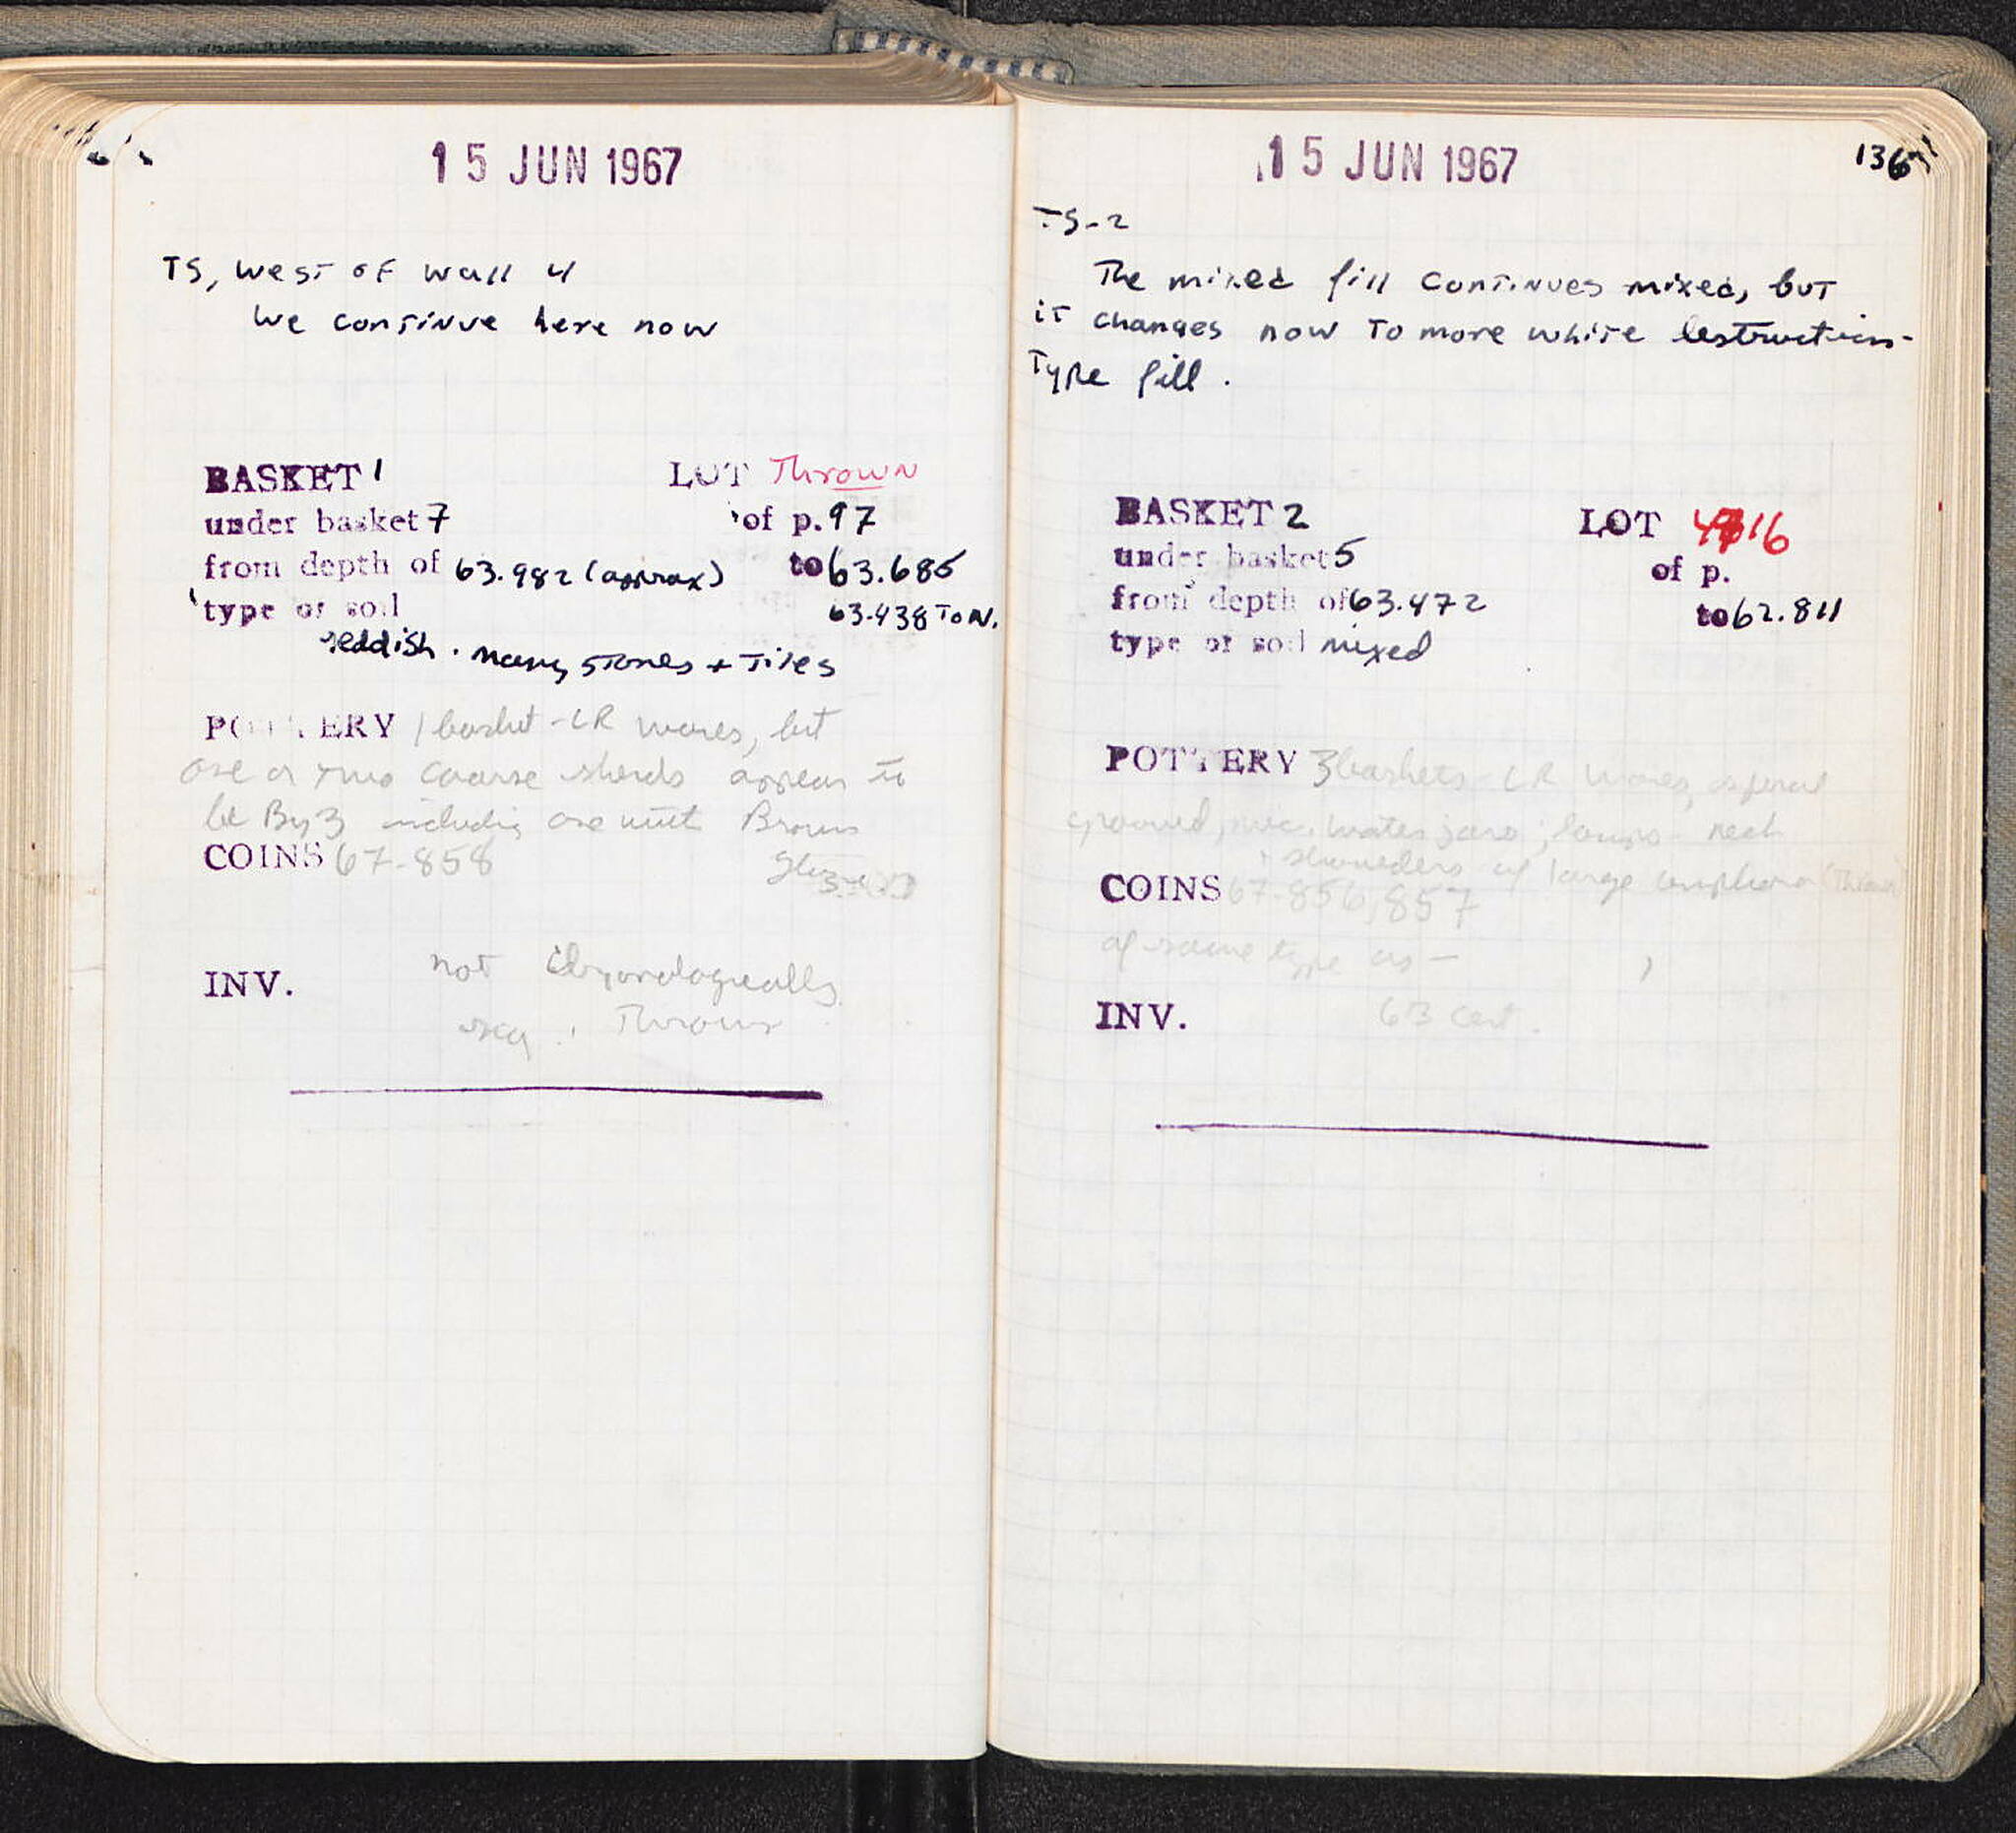 15 JUN 1967
TS, west of wall 4
We continue here now
BASKET 1 LOT Thrown
under basket 7 of p. 97
from depth of 63.982 (approx) to 63.685
type of soil 63.438 To N.
reddish. many stones + Tiles
POTTERY 1 basket - LR wares, but
one or two coarse sherds appear to
be By 3 including one with Brown
COINS 67-858 glaze
INV. not chronologically
Thrown
15 JUN 1967 136
TS-2
The mixed fill continues mixed, but
it changes now To more white destruction-
Type fill.
BASKET 2 LOT 16
under basket 5 of p.
from depth of 63.472 to 62.811
type of soil mixed
POTTERY 3 baskets - LR wares,
grooved, water jars; lamps - neck
+ shoulders of large amphora
COINS 67-856, 857
of same type as -
INV. cent.